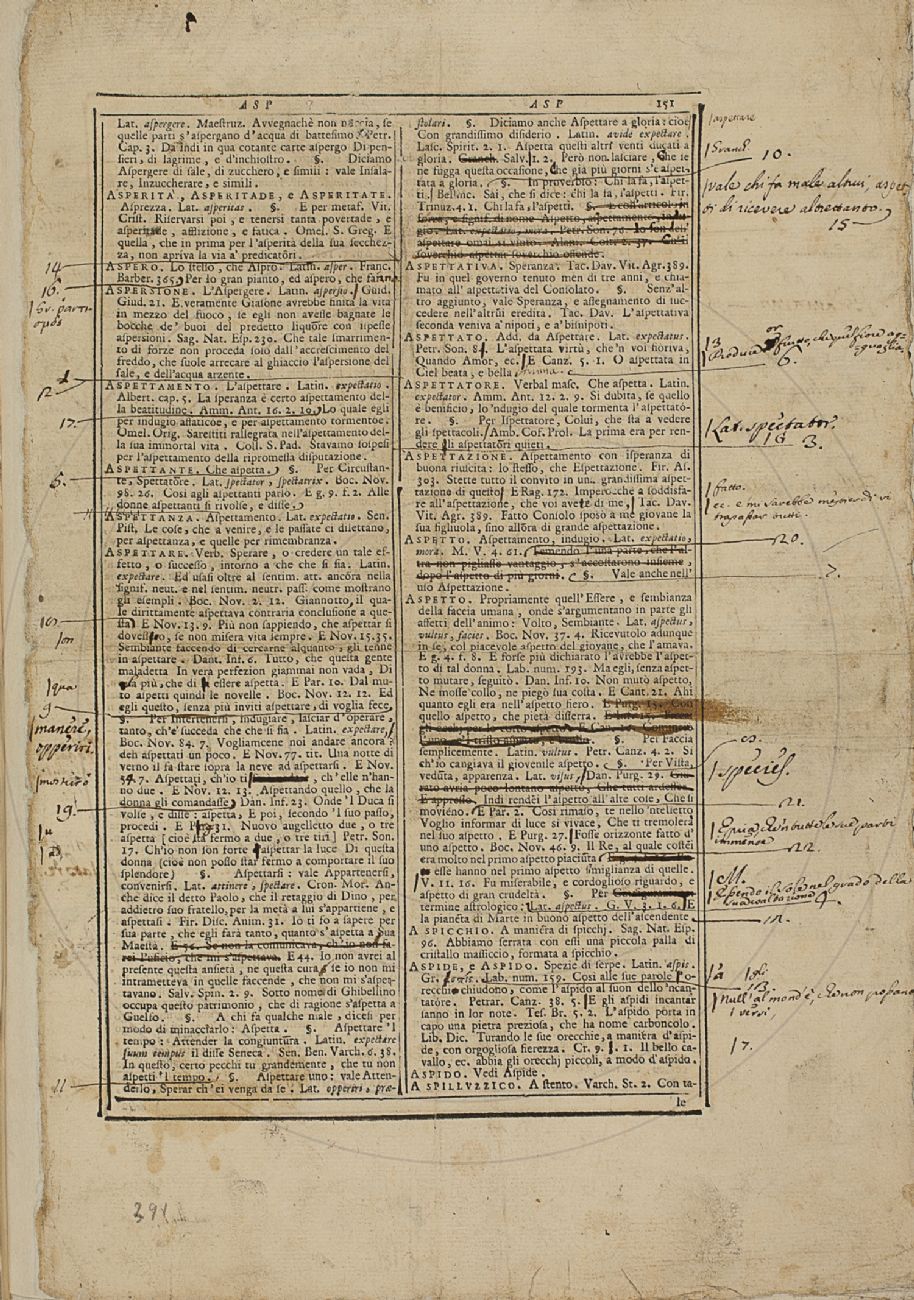 ASP
ASP 151
Lat. aspergere. Maestruz. Avvegnachè non faccia, se
quelle parti s'aspergano d'acqua di battesimo. Petr.
Cap. 3. Da indi in qua cotante carte aspergo Di pen-
sieri, di lagrime, e d'inchiostro. §. Diciamo
Aspergere di sale, di zucchero, e simili: vale Insala-
re, Inzuccherare, e simili.
ASPERITÀ, ASPERITADE, e ASPERITATE.
Asprezza. Lat. asperitas. §. E per metaf. Vit.
Crist. Riservarsi poi, e tenersi tanta povertade, e
asperitade, afflizione, e fatica. Omel. S. Greg. E
quella, che in prima per l'asperità della sua secchez-
za, non apriva la via a' predicatori.
ASPERO. Lo stesso, che Aspro. Latin. asper. Franc.
Barber. 365. Per lo gran pianto, ed aspero, che faranno
ASPERSIONE. L'Aspergere. Latin. aspersio. Guid.
Giud. 21. E veramente Giasone avrebbe finita la vita
in mezzo del fuoco, se egli non avesse bagnate le
bocche de' buoi del predetto liquore con ispesse
aspersioni. Sag. Nat. Esp. 230. Che tale smarrimen-
to di forze non proceda solo dall'accrescimento del
freddo, che suole arrecar al ghiaccio l'aspersione del
sale, e dell'acqua arzente.
ASPETTAMENTO. L'aspettare. Latin. expectatio.
Albert. cap. 5. La speranza è certo aspettamento del-
la beatitudine. Amm. Ant. 16. 2. 19. Lo quale egli
per indugio affaticoe, e per aspettamento tormentoe.
Omel. Orig. Saresiti rallegrata nell'aspettamento del-
la sua immortal vita. Coll. S. Pad. Stavamo sospesi
per l'aspettamento della ripromessa disputazione.
ASPETTANTE. Che aspetta. §. Per Circustan-
te, Spettatore. Lat. spectator, spectatrix. Boc. Nov.
98. 26. Così agli aspettanti parlò. E g. 9. f. 2. Alle
donne aspettanti si rivolse, e disse.
ASPETTANZA. Aspettamento. Lat. expectatio. Sen.
Pist. Le cose, che a venire, e le passate ci dilettano,
per aspettanza, e quelle per rimembranza.
ASPETTARE. Verb. Sperare, o credere un tale ef-
fetto, o successo, intorno a che che si sia. Latin.
expectare. Ed usasi oltre al sentim. att. ancora nella
signif. neut. e nel sentim. neutr. pass. come mostrano
gli esempli. Boc. Nov. 2. 12. Giannotto, il qua-
le dirittamente aspettava contraria conclusione a que-
sta. E Nov. 13. 9. Più non sappiendo, che aspettar si
dovesse, se non misera vita sempre. E Nov. 15. 35.
Sembiante faccendo di cercarne alquanto, gli tenne
in aspettare. Dant. Inf. 6. Tutto, che questa gente
maladetta In vera perfezion giammai non vada, Di
più, che di essere aspetta. E Par. 10. Dal mu-
to aspetti quindi le novelle. Boc. Nov. 12. 12. Ed
egli questo, senza più inviti aspettare, di voglia fece.
§. Per Intertenersi, indugiare, lasciar d'operare,
tanto, ch'e' succeda che che si sia. Latin. expectare.
Boc. Nov. 84. 7. Vogliamcene noi andare ancora?
deh aspettati un poco. E Nov. 77. tit. Una notte di
verno il fa stare sopra la neve ad aspettarsi. E Nov.
34. 7. Aspettati, ch'io ti, ch'elle n'han-
no due. E Nov. 12. 13. Aspettando quello, che la
donna gli comandasse. Dan. Inf. 23. Onde 'l Duca si
volse, e disse: aspetta, E poi, secondo 'l suo passo,
procedi. E 31. Nuovo augelletto due, o tre
aspetta [cioè sta fermo a due, o tre tiri] Petr. Son.
17. Ch'io non son forte aspettar la luce Di questa
donna (cioè non posso star fermo a comportare il suo
splendore) §. Aspettarsi: vale Appartenersi,
convenirsi. Lat. attinere, spectare. Cron. Mor. An-
che dice il detto Paolo, che il retaggio di Dino, per
addietro suo fratello, per la metà a lui s'appartiene, e
aspettasi. Fir. Disc. Anim. 31. Io ti fo a sapere per
sua parte, che egli farà tanto, quanto s'aspetta a Sua
Maestà. E 76. Se non la comunicava, ch'io non fa-
rei l'uficio, che mi s'aspettava. E 44. Io non avrei al
presente questa ansietà, ne questa cura, se io non mi
intrametteva in quelle faccende, che non mi s'aspet-
tavano. Salv. Spin. 1. 9. Sotto nome di Ghibellino
occupa questo patrimonio, che di ragione s'aspetta a
Guelfo. §. A chi fa qualche male, dicesi per
modo di minacciarlo: Aspetta. §. Aspettare 'l
tempo: Attender la congiuntura. Latin. expectare
suum tempus il disse Seneca. Sen. Ben. Varch. 6. 38.
In questo, certo pecchi tu grandemente, che tu non
aspetti 'l tempo. §. Aspettare uno: vale Atten-
derlo, Sperar ch'ei venga da se. Lat. opperiri, præ-
stolari. §. Diciamo anche Aspettare a gloria: cioè
Con grandissimo disiderio. Latin. avide expectare.
Lasc. Spirit. 2. 1. Aspetta questi altri venti ducati a
gloria. Granch. Salv. 1. 2. Però non lasciare, Che se
ne fugga questa occasione, che già più giorni s'è aspet-
tata a gloria. §. In proverbio: Chi la fa, l'aspet-
ti. Bellinc. Sai, che si dice: chi la fa, l'aspetti. Fir.
Trinuz. 4. 1. Chi la fa, l'aspetti. §. E coll'articol. in
forza, e signif. di nome. Aspetto, aspettamento, indu-
gio. Lat. expectatio, mora. Petr. Son. 76. Io son dell'
aspettare omai sì vinto. Alam. Colt. 2. 37. Ch'il
soverchio aspettar soverchio offende.
ASPETTATIVA. Speranza. Tac. Dav. Vit. Agr. 389.
Fu in quel governo tenuto men di tre anni, e chia-
mato all'aspettativa del Consolato. §. Senz'al-
tro aggiunto, vale Speranza, e assegnamento di suc-
cedere nell'altrui eredità. Tac. Dav. L'aspettativa
seconda veniva a' nipoti, e a' bisnipoti.
ASPETTATO. Add. da Aspettare. Lat. expectatus.
Petr. Son. 8. L'aspettata virtù, che'n voi fioriva,
Quando Amor, ec. E Canz. 5. 1. O aspettata in
Ciel beata, e bella Anima.
ASPETTATORE. Verbal masc. Che aspetta. Latin.
expectator. Amm. Ant. 12. 2. 9. Si dubita, se quello
è benificio, lo 'ndugio del quale tormenta l'aspettatô-
re. §. Per Ispettatore, Colui, che sta a vedere
gli spettacoli. Amb. Cof. Prol. La prima era per ren-
dere gli aspettatori quieti.
ASPETTAZIONE. Aspettamento con isperanza di
buona riuscita: lo stesso, che Espettazione. Fir. As.
303. Stette tutto il convito in una grandissima aspet-
tazione di questo. E Rag. 172. Imperocchè a soddisfa-
re all'aspettazione, che voi avete di me, Tac. Dav.
Vit. Agr. 389. Fatto Consolo sposò a me giovane la
sua figliuola, sino allora di grande aspettazione.
ASPETTO. Aspettamento, indugio. Lat. expectatio,
mora. M. V. 4. 61. Temendo l'una parte, che l'al-
tra non pigliasse vantaggio, s'accostarono insieme,
dopo l'aspetto di più giorni. §. Vale anche nell'
uso Aspettazione.
ASPETTO. Propriamente quell'Essere, e sembianza
della faccia umana, onde s'argomentano in parte gli
affetti dell'animo: Volto, Sembiante. Lat. aspectus,
vultus, facies. Boc. Nov. 37. 4. Ricevutolo adunque
in se, col piacevole aspetto del giovane, che l'amava.
E g. 4. f. 8. E forse più dichiarato l'avrebbe l'aspet-
to di tal donna. Lab. num. 193. Ma egli, senza aspet-
to mutare, seguitò. Dan. Inf. 10. Non mutò aspetto,
Ne mosse collo, ne piegò sua costa. E Cant. 21. Ahi
quanto egli era nell'aspetto fiero. E Purg. 15. Con
quello aspetto, che pietà disserra.
§. Per Faccia
semplicemente. Latin. vultus. Petr. Canz. 4. 2. Sì
ch'io cangiava il giovenile aspetto. §. Per Vista,
veduta, apparenza. Lat. visus. Dan. Purg. 29. Giu-
rato avria poco lontano aspetto, Che tutti ardesser.
E appresso. Indi rendei l'aspetto all'alte cose, Che si
moviéno. E Par. 2. Così rimaso, te nello 'ntelletto
Voglio informar di luce sì vivace, Che ti tremolerà
nel suo aspetto. E Purg. 27. Fosse orizzonte fatto d'
uno aspetto. Boc. Nov. 46. 9. Il Re, al quale costei
era molto nel primo aspetto piaciuta.
esse hanno nel primo aspetto simiglianza di quelle.
V. 11. 16. Fu miserabile, e cordoglioso riguardo, e
aspetto di gran crudeltà. §. Per
termine astrologico: Lat. aspectus. G. V. 3. 1. 6. E
la pianeta di Marte in buono aspetto dell'ascendente.
A SPICCHIO. A maniera di spicchj. Sag. Nat. Esp.
96. Abbiamo serrata con essi una piccola palla di
cristallo massiccio, formata a spicchio.
ASPIDE, e ASPIDO. Spezie di serpe. Latin. aspis.
Gr. Lab. num. 159. Così alle sue parole l'o-
recchie chiudono, come l'aspido al suon dello 'ncan-
tatore. Petrar. Canz. 38. 5. E gli aspidi incantar
sanno in lor note. Tes. Br. 5. 2. L'aspido porta in
capo una pietra preziosa, che ha nome carboncolo.
Lib. Dic. Turando le sue orecchie, a maniera d'aspi-
de, con orgogliosa fierezza. Cr. 9. 1. 1. Il bello ca-
vallo, ec. abbia gli orecchj piccoli, a modo d'aspido.
ASPIDO. Vedi Aspide.
A SPILLUZZICO. A stento. Varch. St. 2. Con ta-
le
14
16.
12
17.
6.
10.
ion
qua
9
manere,
opperiri.
19.
11
aspettare
Granch.
10.
vale chi fa male altrui, aspet-
ti di ricevere altrettanto.
15
6.
Lat. spectator.
18 3.
fatto.
20.
7.
species.
21.
22.
4.
12.
17.
391